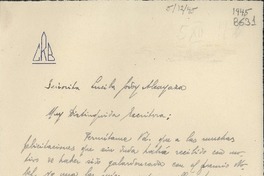 5/12/45
1945
B631
CRB
Señorita Lucila Godoy Alcayaga
Muy Distinguida Escritora:
Permítame Vd. que a las muchas
felicitaciones que sin duda habrá recibido con mo-
tivo de haber sido galardonada con el premio